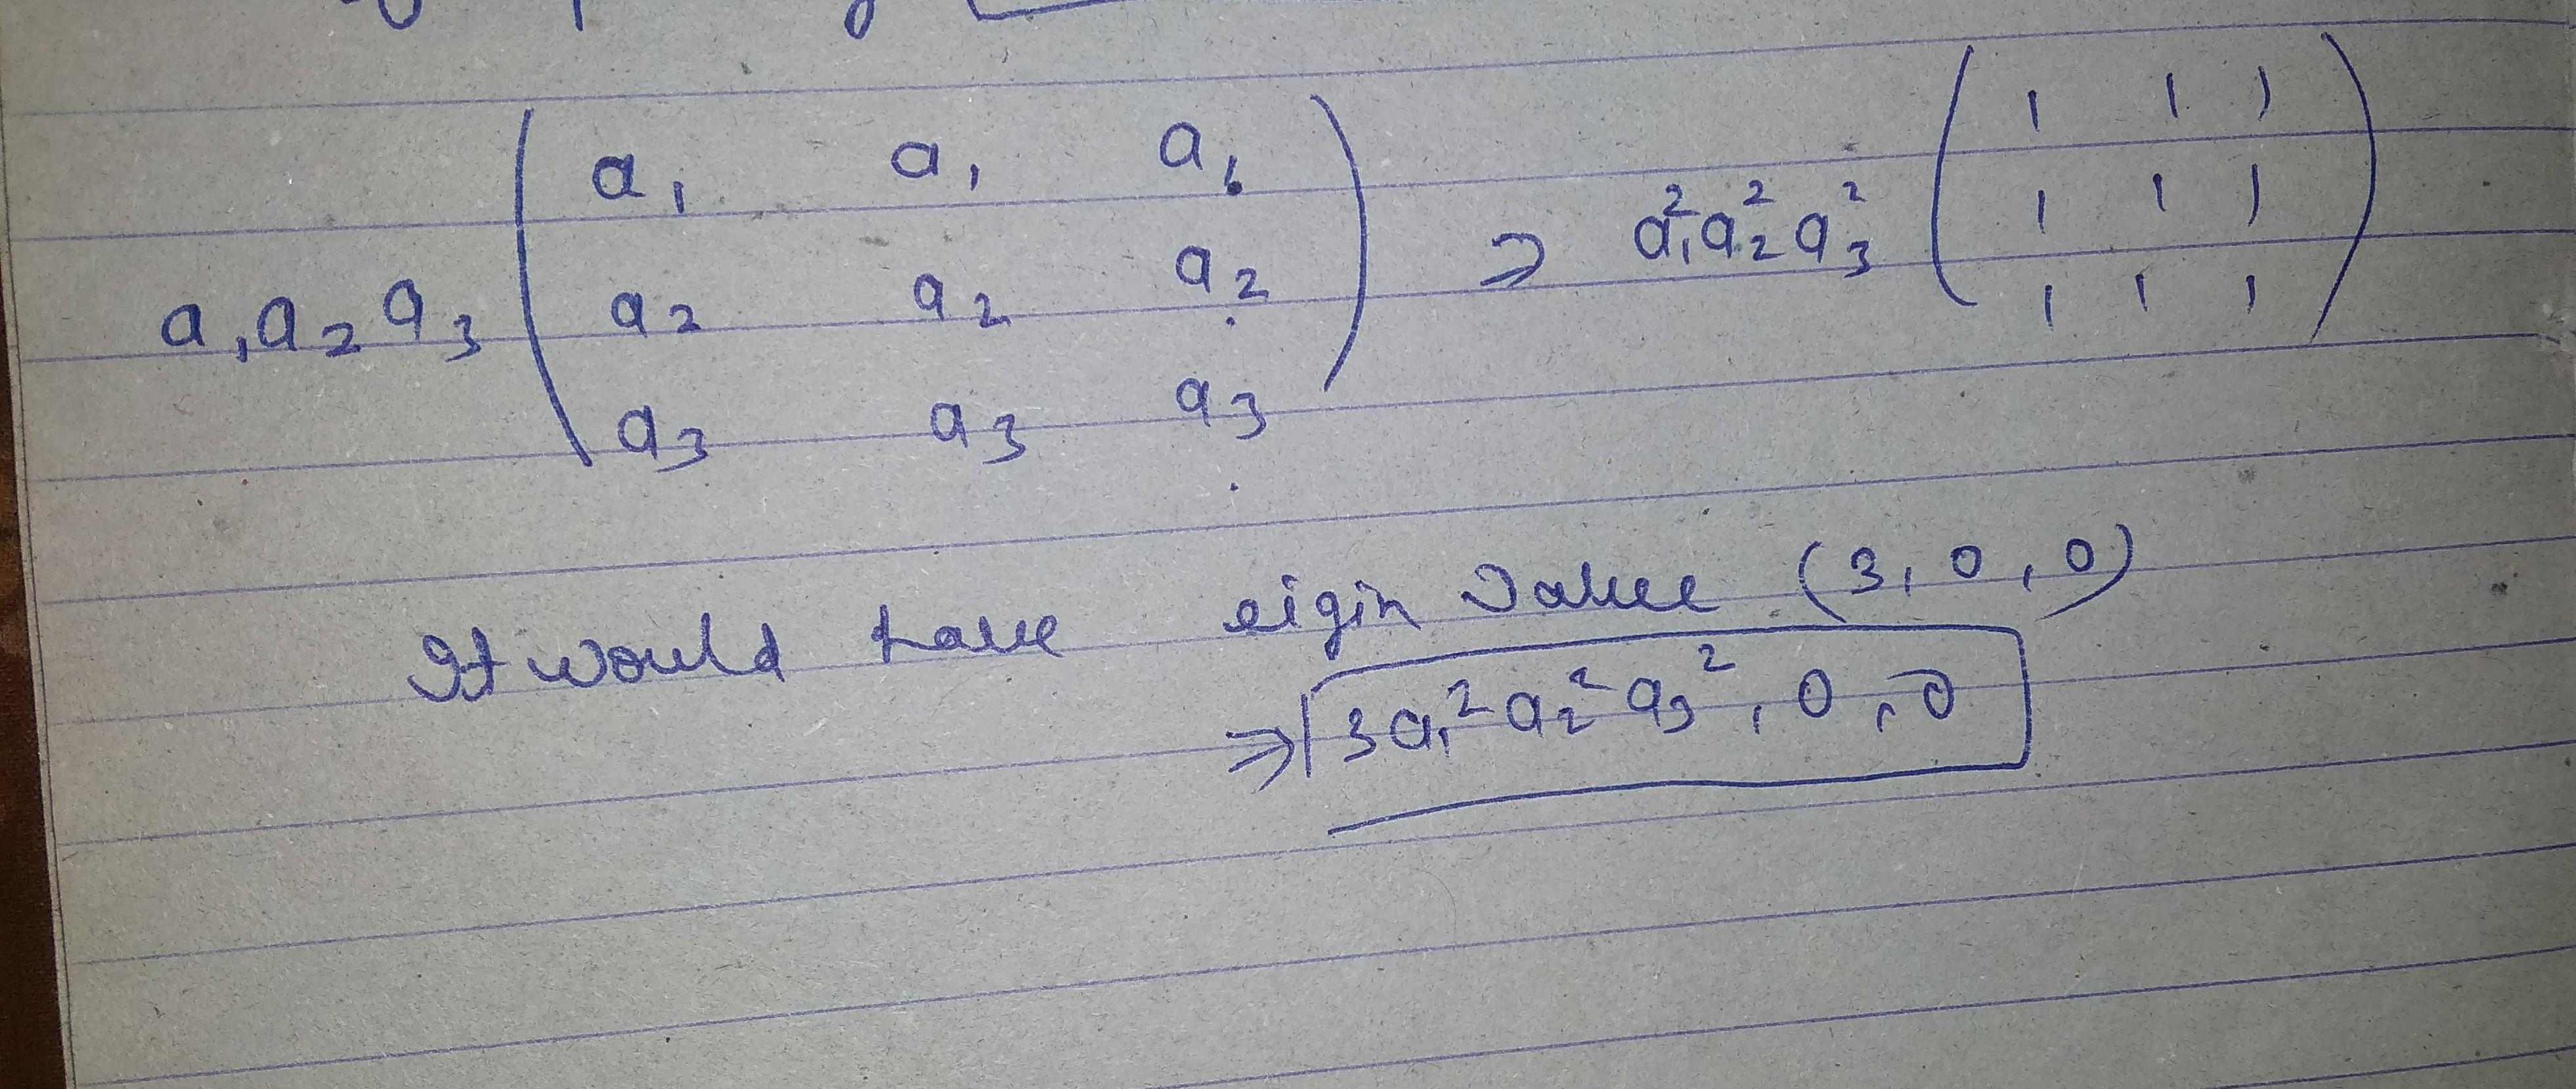 a₁a₂a₃ ( a₁ a₁ a₁ ) ⇒ a₁²a₂²a₃² ( 1 1 1 )
( a₂ a₂ a₂ ) ( 1 1 1 )
( a₃ a₃ a₃ ) ( 1 1 1 )
It would have eigin value (3, 0, 0)
⇒ 3a₁²a₂²a₃², 0, 0